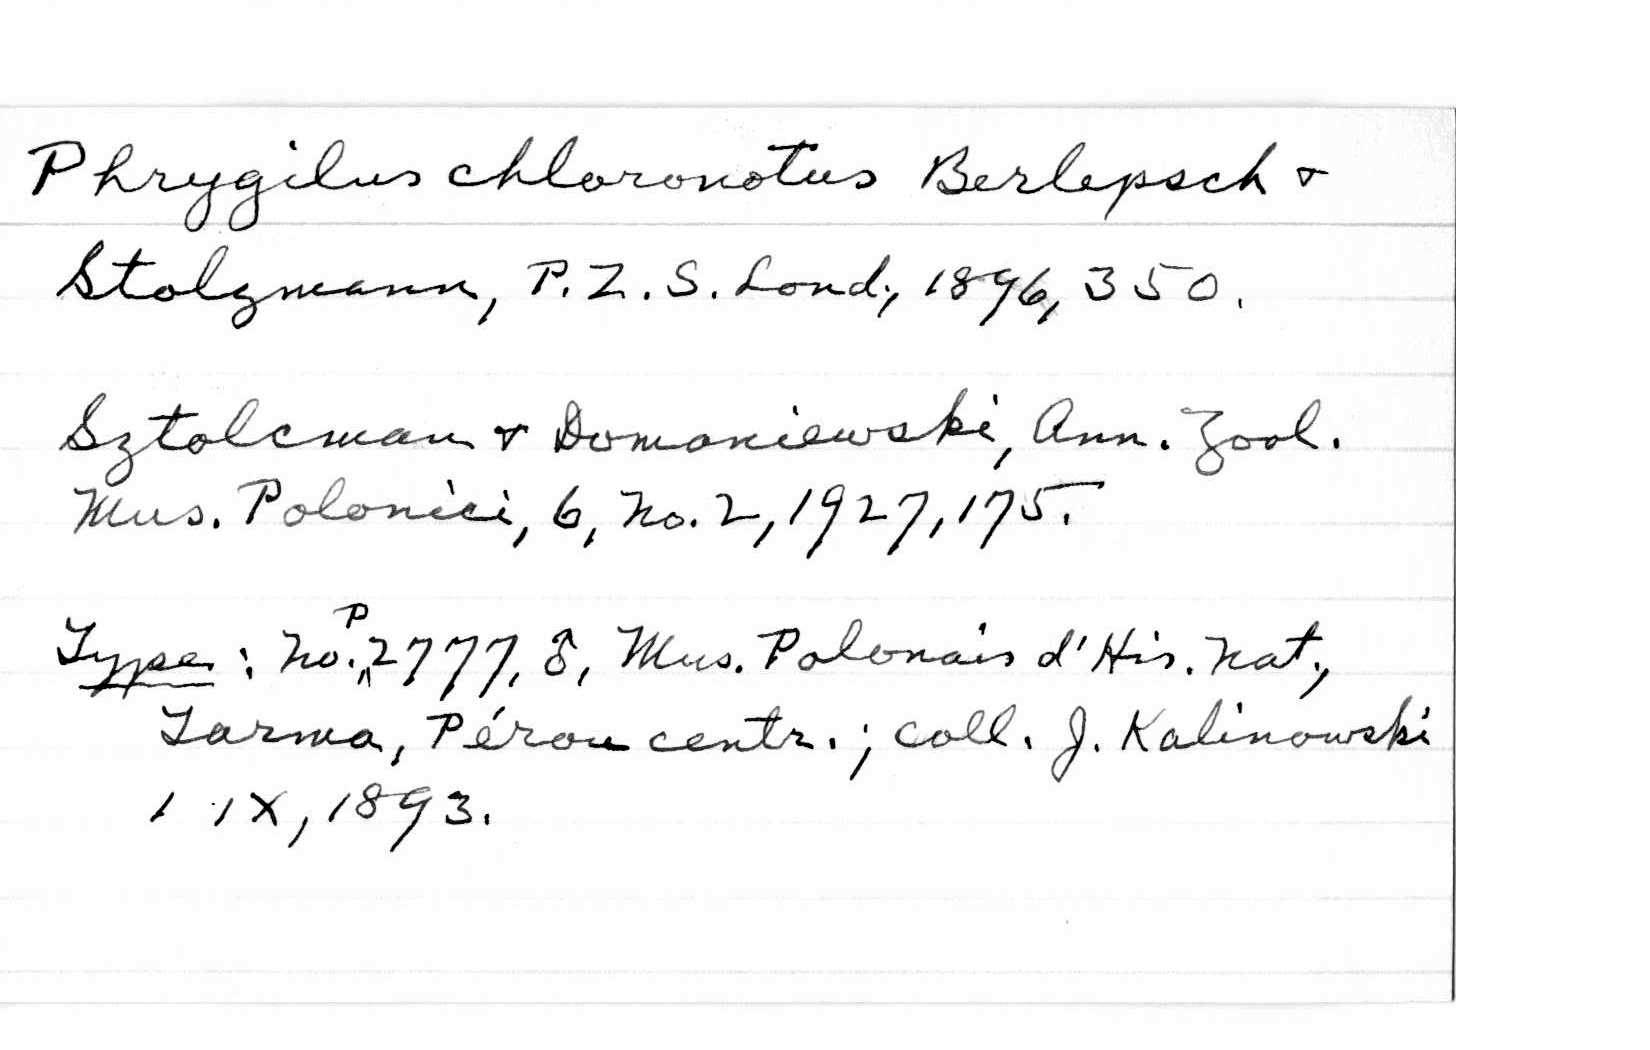 Phrygilus chloronotus Berlepsch &
Stolzmann, P.Z.S. Lond., 1896, 350.
Sztolcman & Domaniewski, Ann. Zool.
Mus. Polonici, 6, No. 2, 1927, 175.
Type: No. P2777, ♂, Mus. Polonais d'His. Nat.,
Tarma, Pérou centr.; coll. J. Kalinowski
1 IX, 1893.